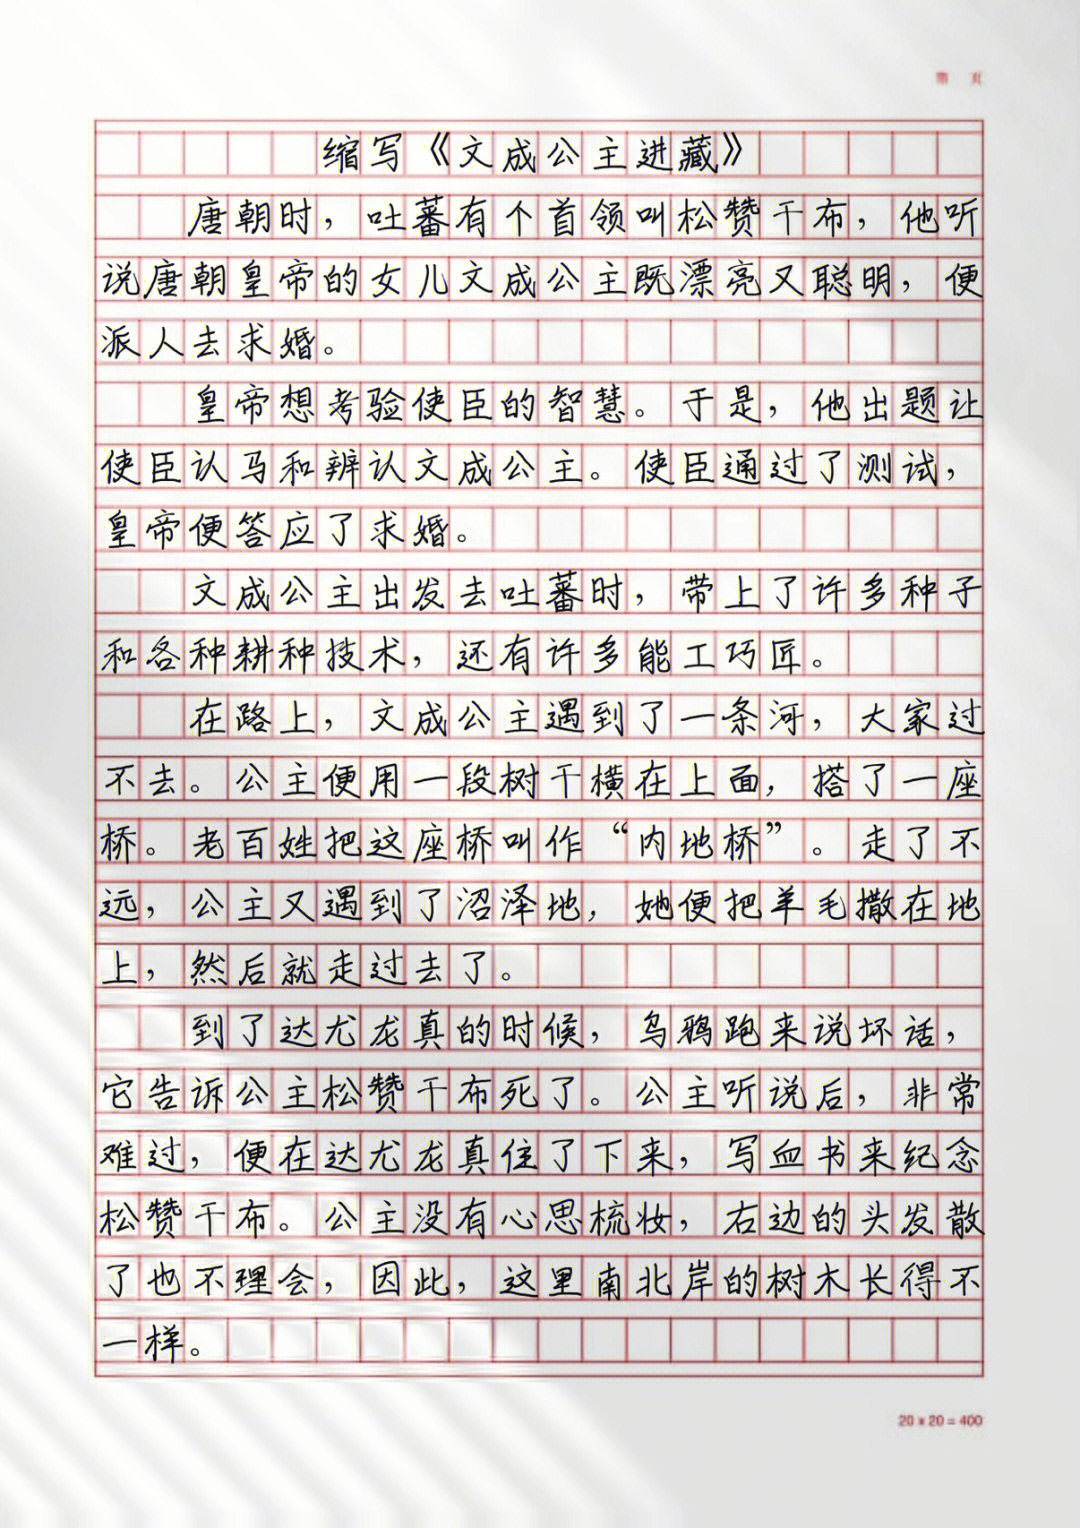 第 页
缩写《文成公主进藏》
唐朝时，吐蕃有个首领叫松赞干布，他听
说唐朝皇帝的女儿文成公主既漂亮又聪明，便
派人去求婚。
皇帝想考验使臣的智慧。于是，他出题让
使臣认马和辨认文成公主。使臣通过了测试，
皇帝便答应了求婚。
文成公主出发去吐蕃时，带上了许多种子
和各种耕种技术，还有许多能工巧匠。
在路上，文成公主遇到了一条河，大家过
不去。公主便用一段树干横在上面，搭了一座
桥。老百姓把这座桥叫作“内地桥”。走了不
远，公主又遇到了沼泽地，她便把羊毛撒在地
上，然后就走过去了。
到了达尤龙真的时候，乌鸦跑来说坏话，
它告诉公主松赞干布死了。公主听说后，非常
难过，便在达尤龙真住了下来，写血书来纪念
松赞干布。公主没有心思梳妆，右边的头发散
了也不理会，因此，这里南北岸的树木长得不
一样。
20×20=400